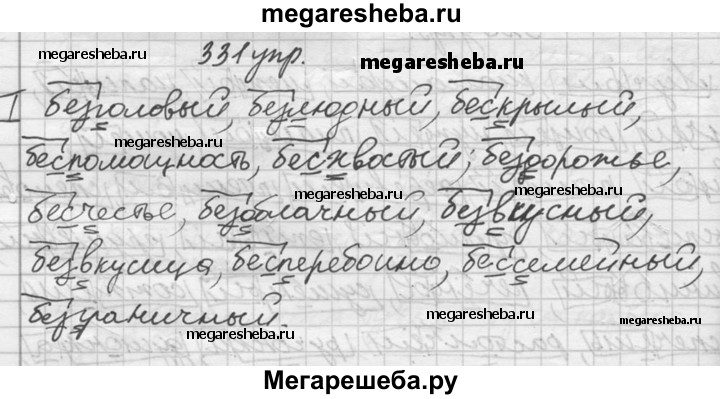 megaresheba.ru
megaresheba.ru
331 упр.
megaresheba.ru
I безголовый, безлюдный, бескрылый,
megaresheba.ru
megaresheba.ru
беспомощность, бесхвостый; бездорожье,
megaresheba.ru
megaresheba.ru
бесчестье, безоблачный, безвкусный,
безвкусица, бесперебойно, бессемейный,
безграничный.
megaresheba.ru
megaresheba.ru
megaresheba.ru
Мегарешеба.ру